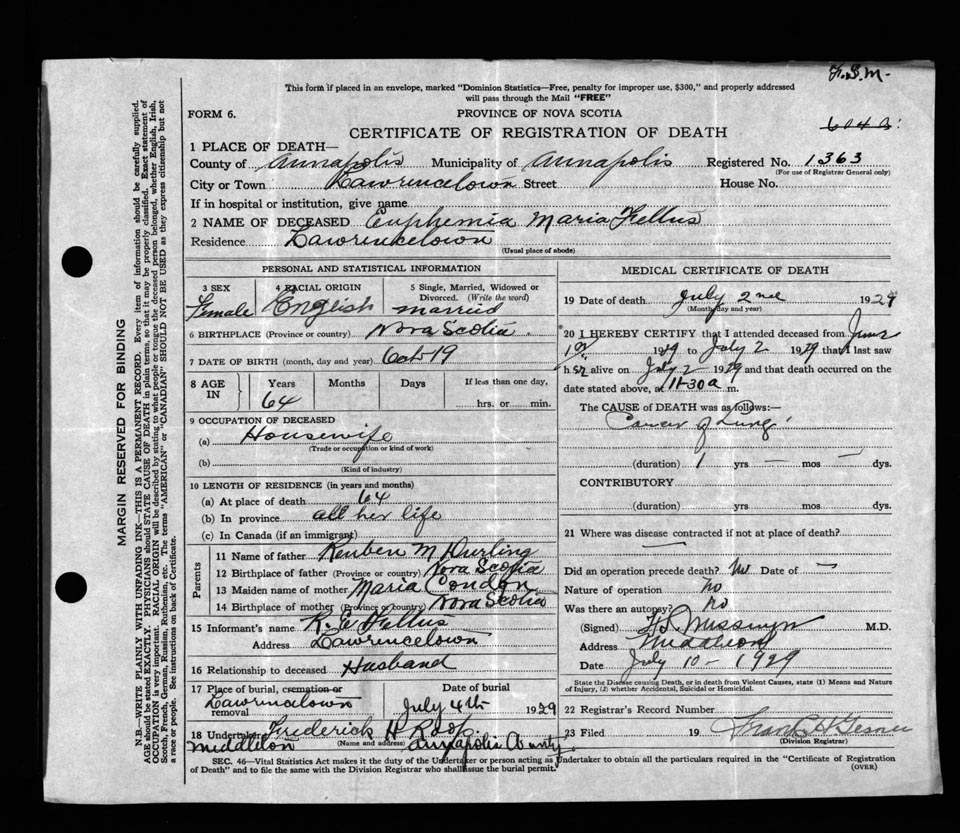 F.S.M.
This form if placed in an envelope, marked "Dominion Statistics—Free, penalty for improper use, $300," and properly addressed
will pass through the Mail "FREE"
FORM 6. PROVINCE OF NOVA SCOTIA
CERTIFICATE OF REGISTRATION OF DEATH
1 PLACE OF DEATH—
County of Annapolis Municipality of Annapolis Registered No. 1363
(For use of Registrar General only)
City or Town Lawrencetown Street House No.
If in hospital or institution, give name
2 NAME OF DECEASED Euphemia Maria Fellus
Residence Lawrencetown
(Usual place of abode)
PERSONAL AND STATISTICAL INFORMATION
3 SEX 4 RACIAL ORIGIN 5 Single, Married, Widowed or
Divorced. (Write the word)
Female English married
6 BIRTHPLACE (Province or country) Nova Scotia
7 DATE OF BIRTH (month, day and year) Oct 19
8 AGE IN Years Months Days If less than one day,
64 hrs. or min.
9 OCCUPATION OF DECEASED
(a) Housewife
(Trade or occupation or kind of work)
(b)
(Kind of industry)
10 LENGTH OF RESIDENCE (in years and months)
(a) At place of death 64
(b) In province all her life
(c) In Canada (if an immigrant)
Parents
11 Name of father Reuben M Durling
12 Birthplace of father (Province or country) Nova Scotia
13 Maiden name of mother Maria Condon
14 Birthplace of mother (Province or country) Nova Scotia
15 Informant's name R. E. Fellus
Address Lawrencetown
16 Relationship to deceased Husband
17 Place of burial, cremation or Date of burial
removal Lawrencetown July 4th 1929
18 Undertaker Frederick H Roop
(Name and address)
Middleton Annapolis County
MEDICAL CERTIFICATE OF DEATH
19 Date of death July 2nd 1929
(Month, day and year)
20 I HEREBY CERTIFY that I attended deceased from June
1929 to July 2 1929 that I last saw
her alive on July 2 - 1929 and that death occurred on
date stated above, at 11.30 a m.
The CAUSE of DEATH was as follows:—
Cancer of Lung
(duration) 1 yrs — mos — dys.
CONTRIBUTORY
(duration) yrs. mos. dys.
21 Where was disease contracted if not at place of death?
Did an operation precede death? No Date of —
Nature of operation no
Was there an autopsy? no
(Signed) M.D.
Address Middleton
Date July 10 - 1929
State the Disease causing Death, or in death from Violent Causes, state (1) Means and Nature
of Injury, (2) whether Accidental, Suicidal or Homicidal.
22 Registrar's Record Number
23 Filed 19 Frank H Gesner
(Division Registrar)
SEC. 46—Vital Statistics Act makes it the duty of the Undertaker or person acting as Undertaker to obtain all the particulars required in the "Certificate of Registration
of Death" and to file the same with the Division Registrar who shall issue the burial permit.
(OVER)
MARGIN RESERVED FOR BINDING
N.B.—WRITE PLAINLY WITH UNFADING INK—THIS IS A PERMANENT RECORD. Every item of information should be carefully supplied.
AGE should be stated EXACTLY. PHYSICIANS should STATE CAUSE OF DEATH in plain terms, so that it may be properly classified. Exact statement of
OCCUPATION is very important. RACIAL ORIGIN will be described by stating to what people or tongue the deceased person belonged, whether English, Irish,
Scotch, French, German, Russian, Ruthenian, etc. The terms "AMERICAN" or "CANADIAN" SHOULD NOT BE USED as they express citizenship but not
a race or people. See instructions on back of Certificate.